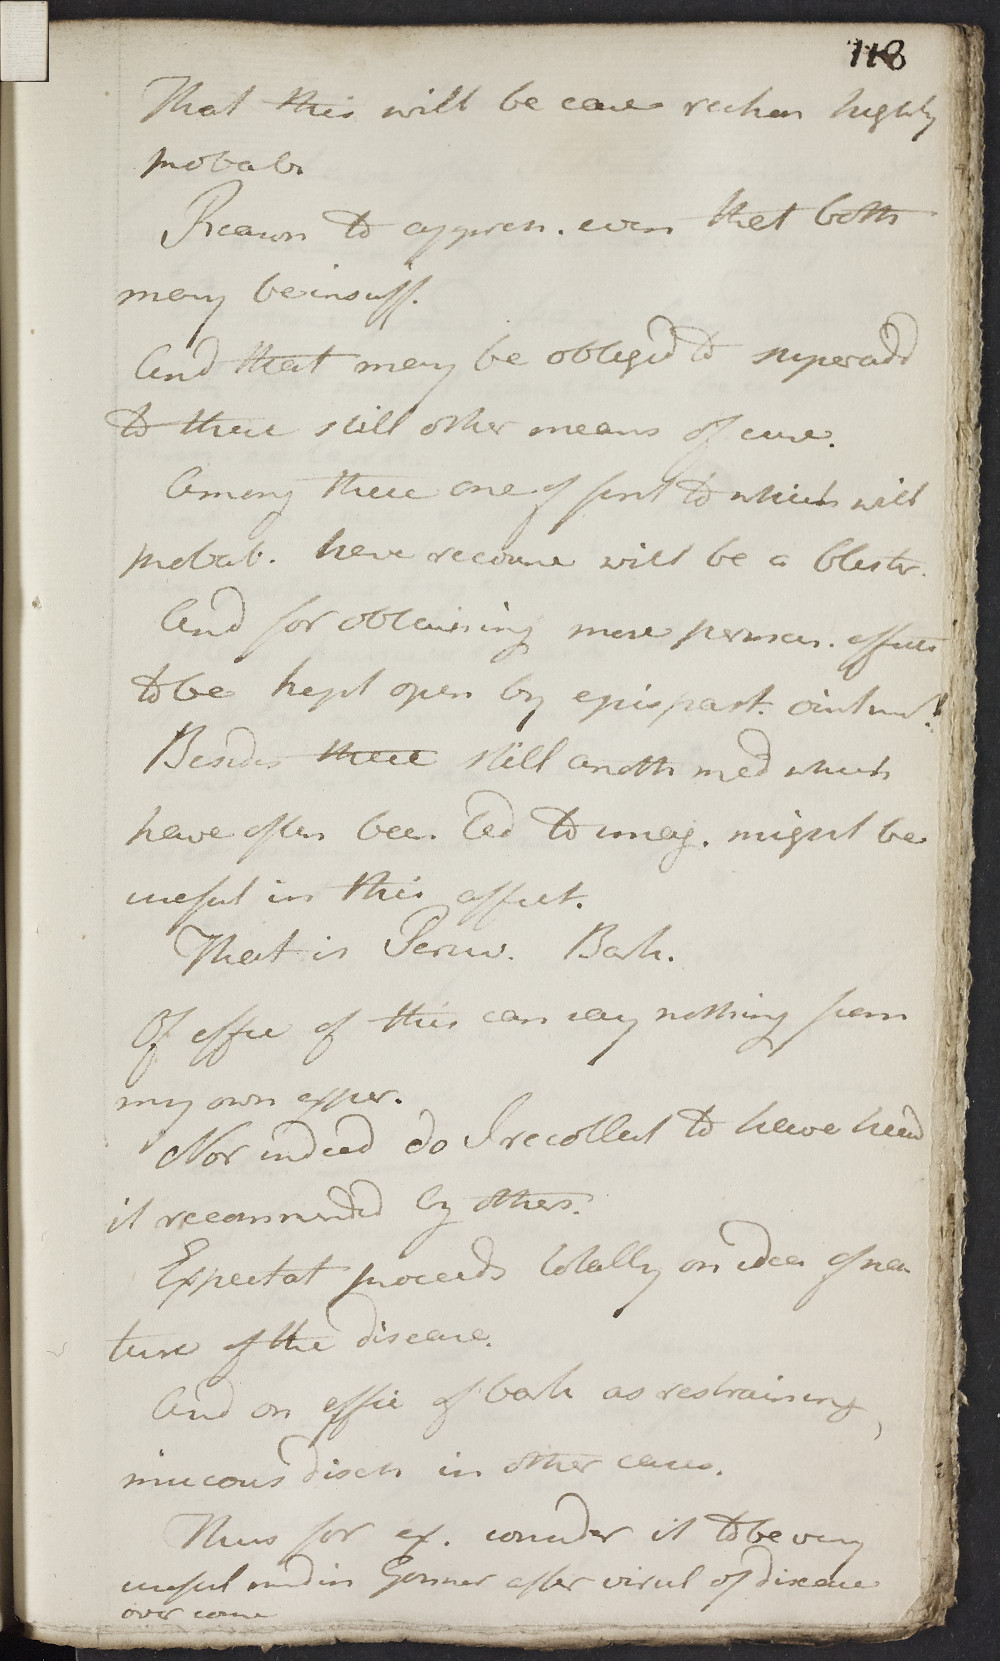 118
That this will be case reckon highly
probab.
Reason to appreh. even that both
may be insuff.
And that may be obliged to superadd
to these still other means of cure.
Among these one of first to which will
probab. have recourse will be a blister.
And for obtaining more perman. effects
to be kept open by epispast. ointmt.
Besides these still anoth med which
have often been led to imag. might be
useful in this affect.
That is Peruv. Bark.
Of effic of this can say nothing from
my own exper.
Nor indeed do I recollect to have heard
it recommended by others.
Expectat proceeds totally on idea of na
ture of the disease.
And on effic of bark as restraining
mucous disch in other cases.
Thus for ex. consider it to be very
useful med in Gonnor after virul of disease
over come